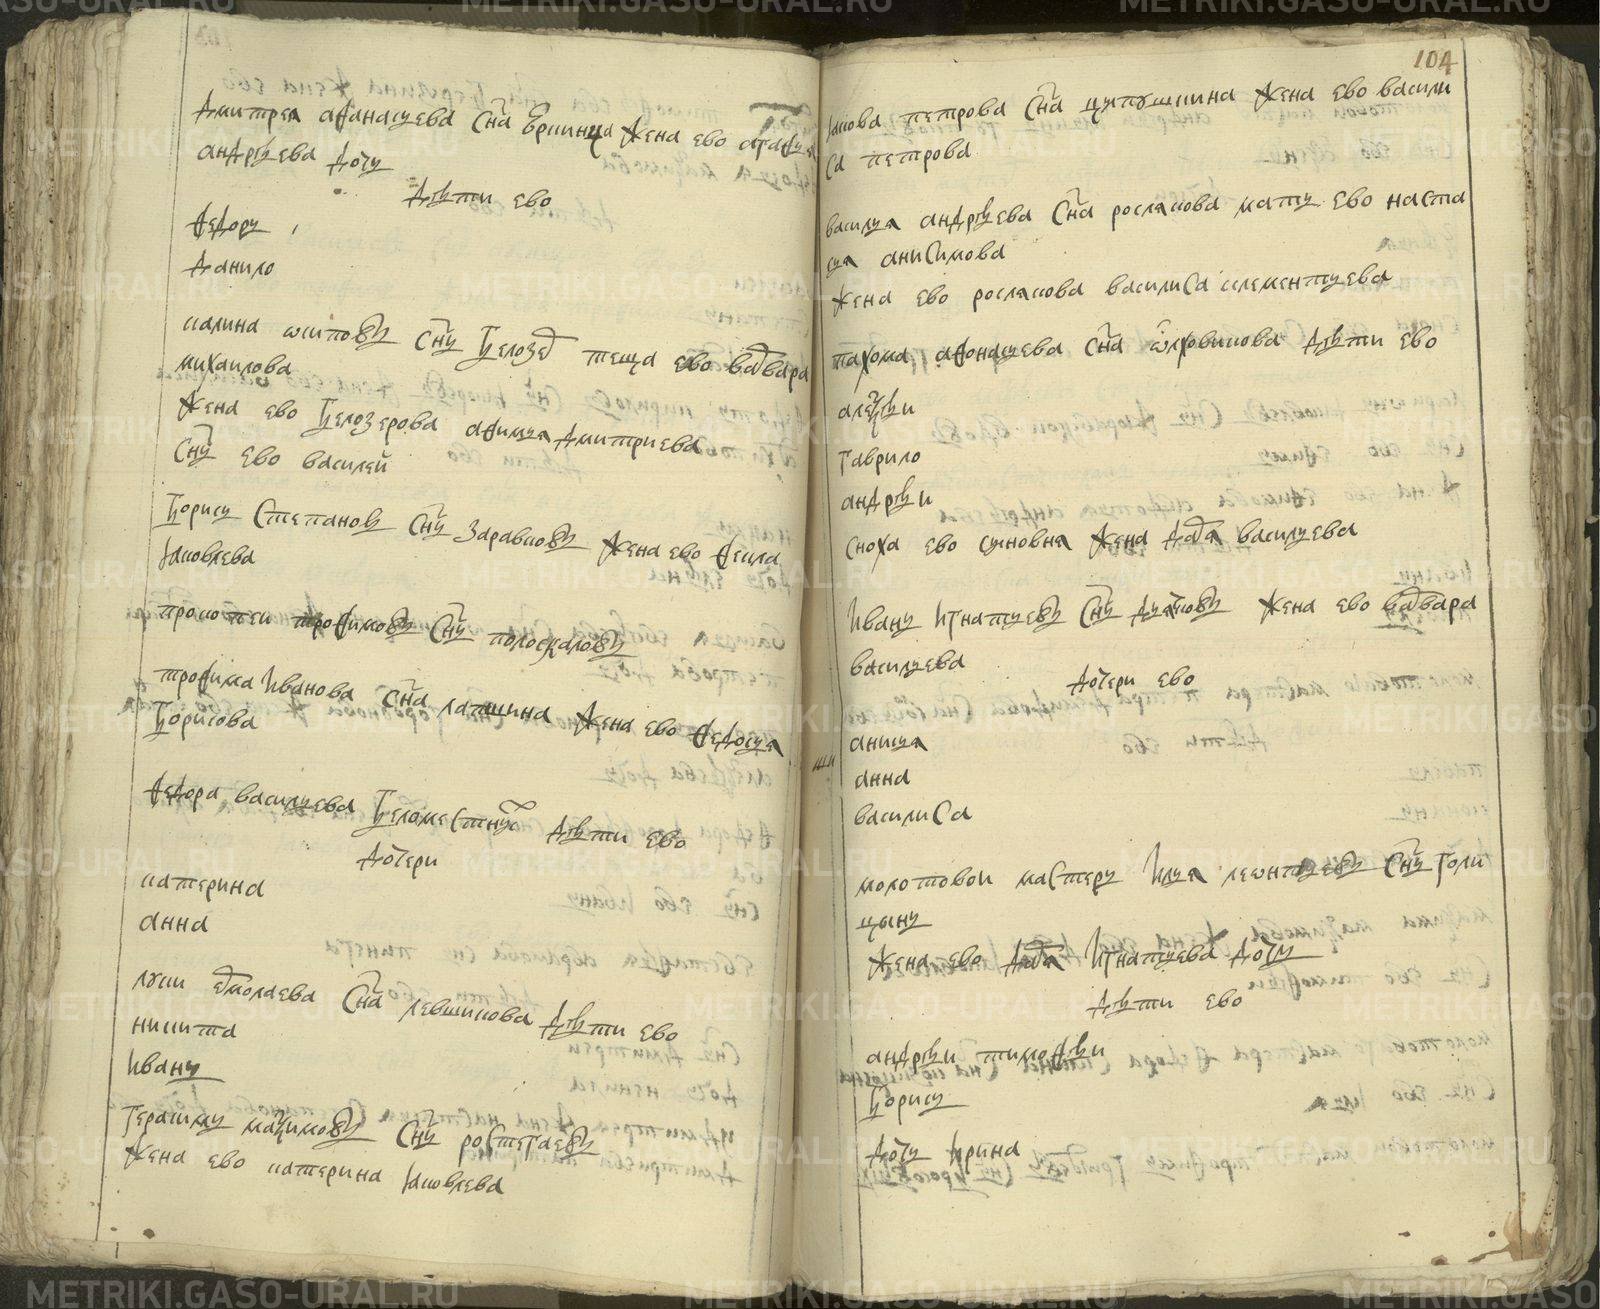 дмитреа афанасьева сна ершица жена ево афанася
андрѣева дочь
дѣти ево
федоръ
данило
калина осиповъ снъ белозеръ теща ево варвара
михаилова
жена ево белозерова афимья дмитриева
снъ ево василей
борисъ степановъ снъ
жена ево фекла
яковлева
прокопеи трофимовъ снъ полоскаловъ
трофима иванова сна лапшина жена ево федосья
борисова
федора васильева беломестнъ дѣти ево
дочери
катерина
анна
луки ермолаева сна левшикова дѣти ево
никита
иванъ
герасимъ маѯимовъ снъ ростегаевъ
жена ево катерина яковлева
104
якова петрова сна цыпушкина жена ево васили
са петрова
василья андрѣева сна рослякова мать ево наста
сья анисимова
жена ево рослякова василиса клементьева
пахома афонасьева сна дѣти ево
алеѯѣи
гаврило
андрѣи
сноха ево сыновня жена дарья васильева
иванъ игнатьевъ снъ жена ево варвара
васильева
дочери ево
анисья
анна
василиса
молотовои мастеръ илья леонтьевъ снъ голи
цынъ
жена ево дарья игнатьева дочь
дѣти ево
андрѣи тимофѣи
борисъ
дочь ирина
METRIKI.GASO-URAL.RU